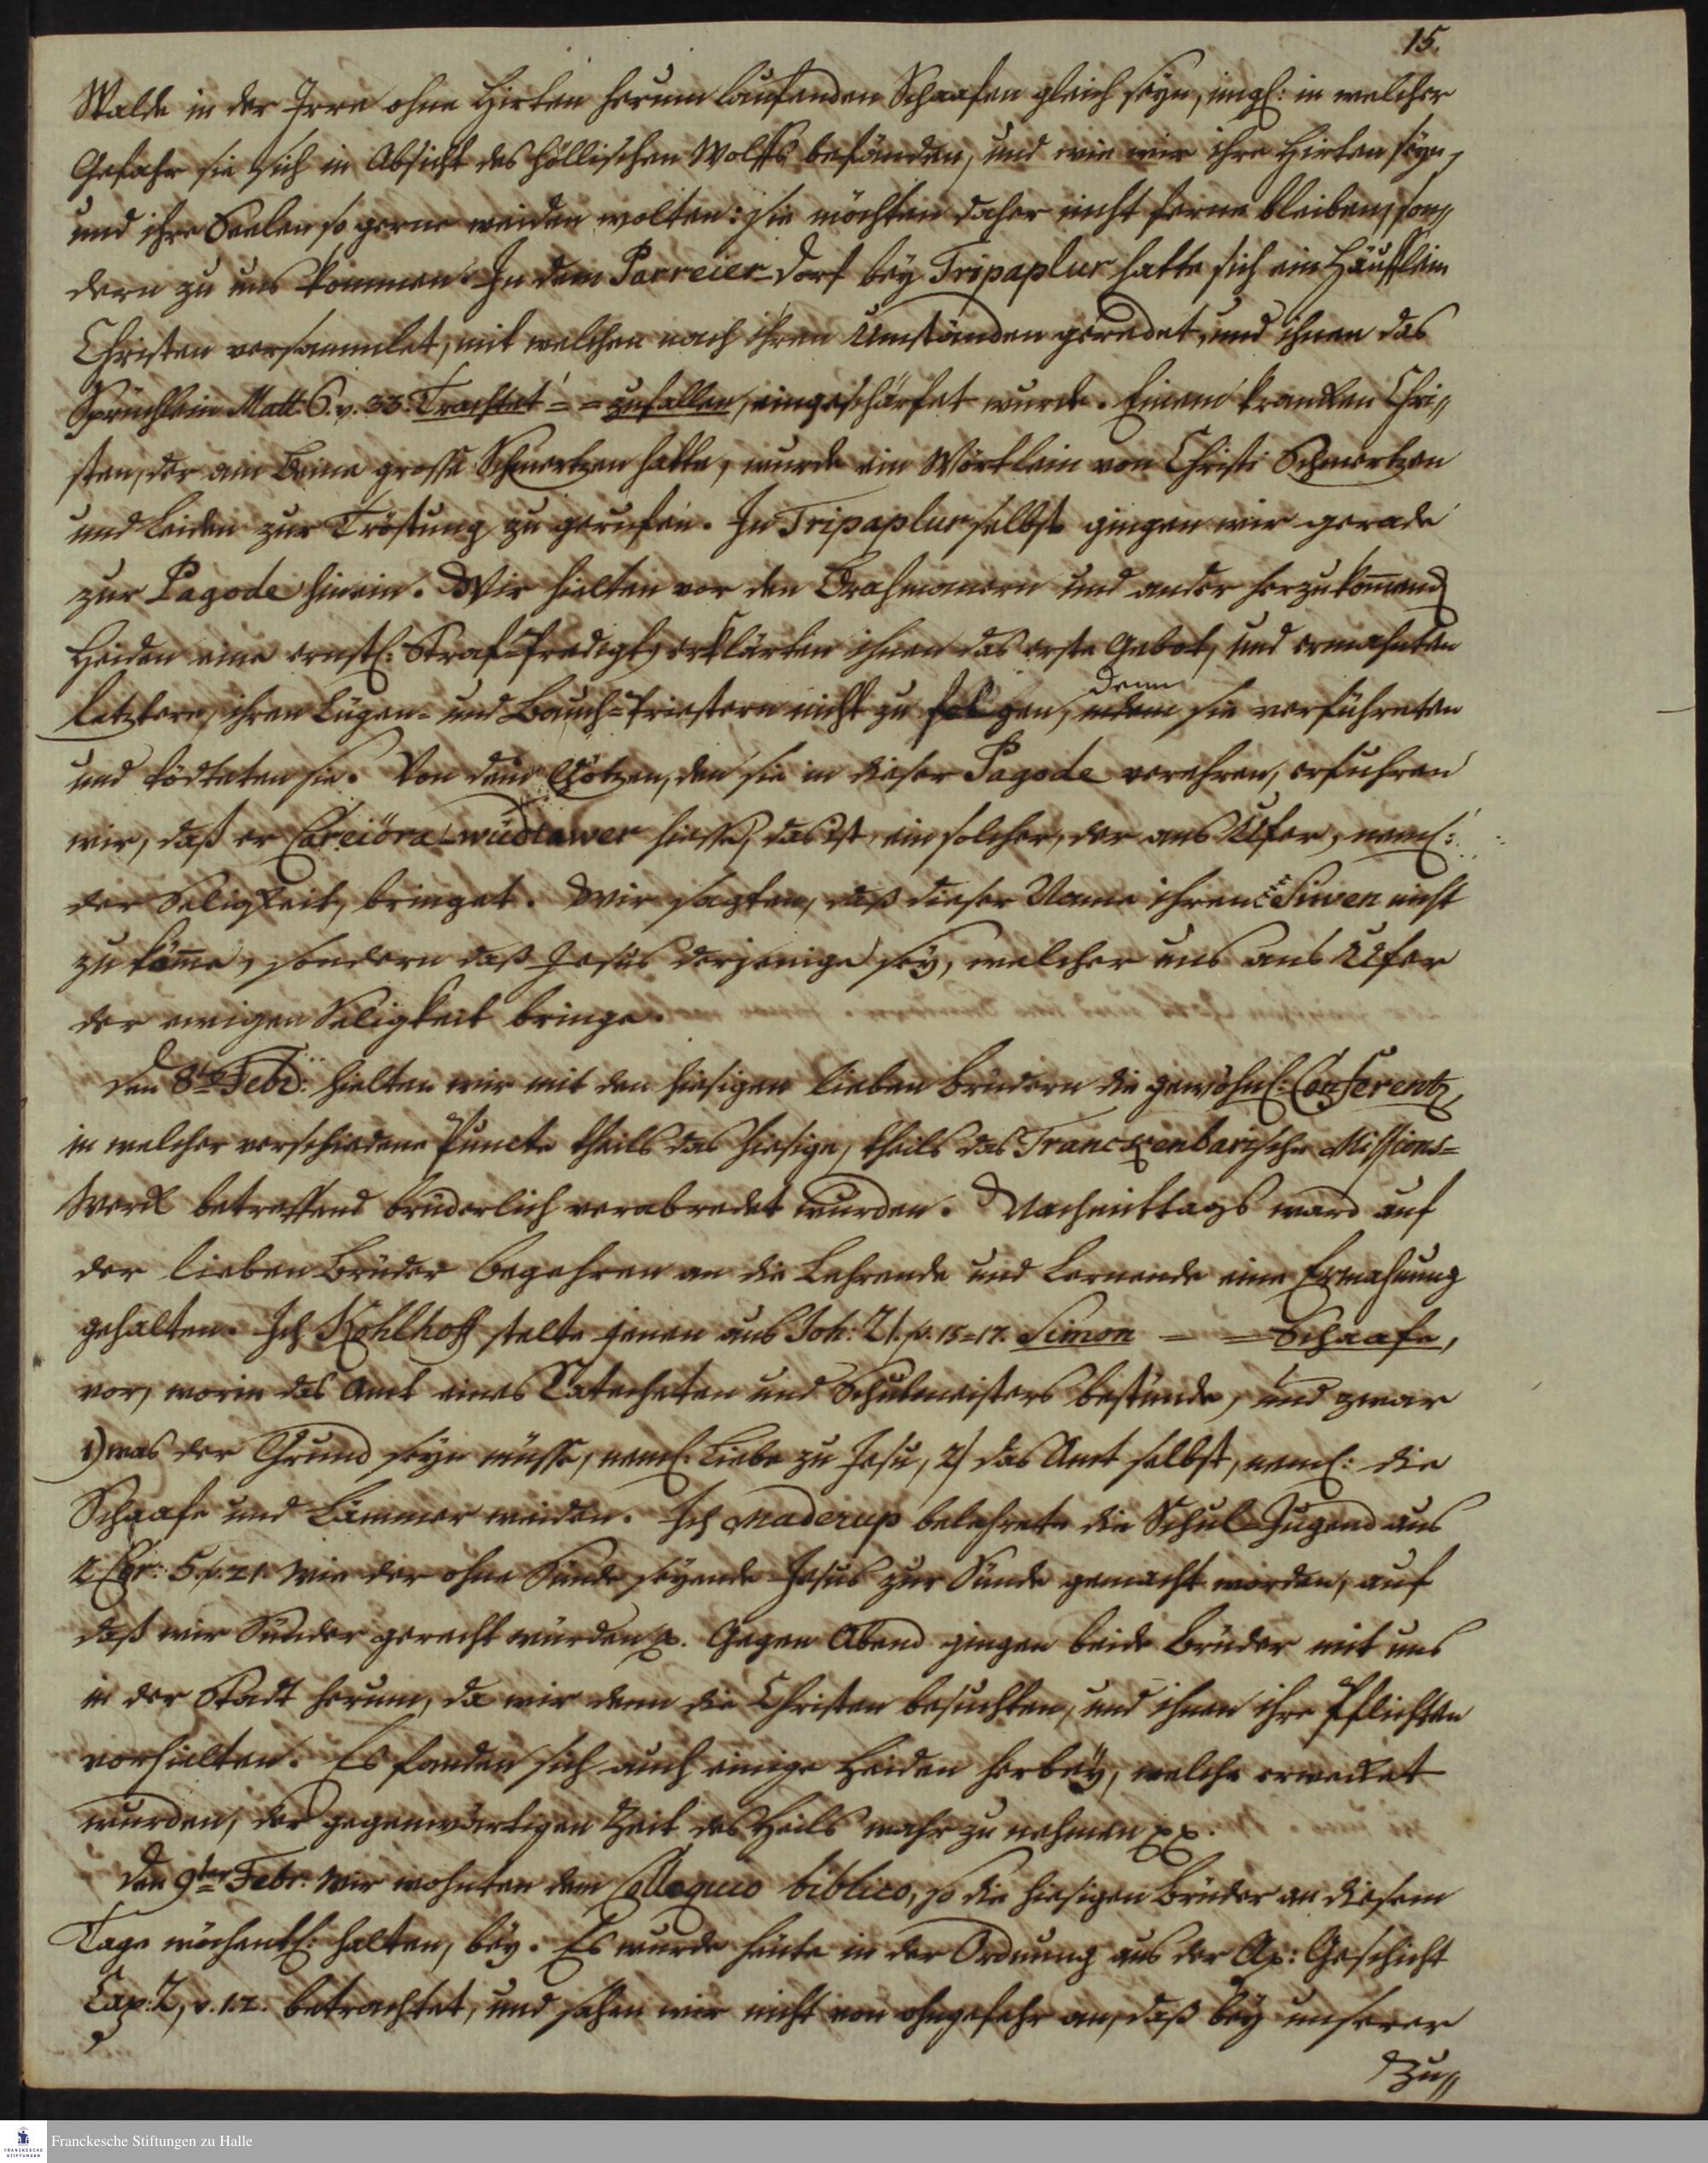 15.
Walde in der Irre ohne Hirten herum lauffenden Schaafen gleich seyn, imgl: in welcher
Gefahr sie sich in Absicht des höllischen Wolffs befänden, und wie wir ihre Hirten seyn,
und ihre Seelen so gerne weiden wolten: sie möchten daher nicht ferne bleiben, son„
dern zu uns kommen. In dem Parreier-Dorf bey Tripaplur hatte sich ein Häufflein
Christen versammlet, mit welchen nach ihren Umständen geredet, und ihnen das
Sprüchlein Matt. 6. v. 33. Trachtet = = zufallen, eingeschärfet wurde. Einem krancken Chri„
sten, der am Beine grosse Schmertzen hatte, wurde ein Wörtlein von Christi Schmertzen
und Leiden zur Tröstung zu gerufen. In Tripaplur selbst gingen wir gerade
zur Pagode hinein. Wir hielten vor den Brahmanern und ander herzukomend
Heiden eine ernstl: Straf-Predigt, erklärten ihnen das erste Gebot, und ermahnten
letztere, ihren Lügen- und Bauch-Priestern nicht zu folgen, denn sie verführeten
und tödteten sie. Von dem Götzen, den sie in dieser Pagode verehren, erfuhren
wir, daß er Careiöra-wüdtawer hiesse, das ist, ein solcher, der ans Ufer, neml:
der Seligkeit, bringet. Wir sagten, daß dieser Name ihrem Siwen nicht
zukäme, sondern daß Jesus derjenige sey, welcher uns ans Ufer
der ewigen Seligkeit bringe.
Den 8ten Febr: hielten wir mit den hiesigen lieben Brüdern die gewöhnl: Conferentz,
in welcher verschiedene Puncte theils das hiesige, theils das Tranckenbarische Missions=
Werck betreffend brüderlich verabredet wurden. Nachmittags ward auf
der lieben Brüder Begehren an die Lehrende und Lernende eine Ermahnung
gehalten. Ich Kohlhoff stelte jenen aus Joh: 21. v. 15-17. Simon = = Schaafe,
vor, worin das Amt eines Catecheten und Schulmeisters bestünde, und zwar
1) was der Grund seyn müsse, neml. Liebe zu Jesu, 2) das Amt selbst, neml: die
Schaafe und Lämmer weiden. Ich Maderup belehrete die Schul-Jugend aus
2 Cor: 5. v. 21. wie der ohne Sünde seyende Jesus zur Sünde gemacht worden, auf
daß wir Sünder gerecht würden p. Gegen Abend gingen beide Brüder mit uns
in der Stadt herum, da wir denn die Christen besuchten, und ihnen ihre Pflichten
vorhielten. Es fanden sich auch einige Heiden herbey, welche erwecket
wurden, der gegenwärtigen Zeit des Heils wahr zu nehmen pp.
Den 9ten Febr. Wir wohnten dem Colloquio biblico, so die hiesigen Brüder an diesem
Tage wöchentl: halten, bey. Es wurde heute in der Ordnung aus der Ap: Geschicht
Cap: 2, v. 12. betrachtet, und sahen wir nicht von ohngefehr an, daß bey unserer
Zu„
Franckesche Stiftungen zu Halle